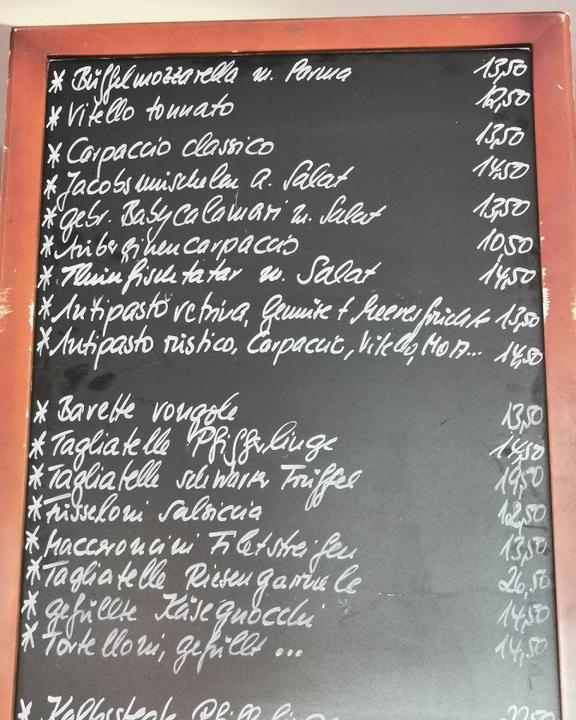 * Büffelmozzarella m. Parma 13,50
* Vitello tonnato 12,50
* Carpaccio classico 13,50
* Jacobsmuschelen a. Salat 14,50
* gebr. Babycalamari m. Salat 13,50
* Auberginencarpaccio 10,50
* Thunfischtatar m. Salat 14,50
* Antipasto vetrina, Gemüse + Meeresfrüchte 13,50
* Antipasto rustico, Carpaccio, Vitello, ... 14,50
* Bavette vongole 13,50
* Tagliatelle Pfifferlinge 14,50
* Tagliatelle schwarze Trüffel 19,50
* salsiccia 12,50
* Maccaroncini Filetstreifen 13,50
* Tagliatelle Riesengarnele 26,50
* gefüllte Käsegnocchi 14,50
* Tortelloni, gefüllt ... 14,50
* Kalbssteak